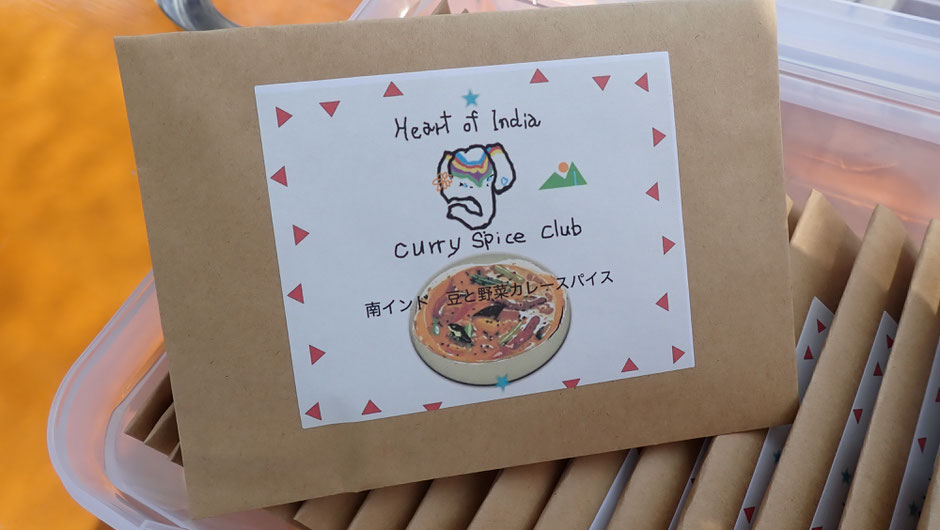 Heart of India
Curry Spice Club
南インド 豆と野菜カレースパイス